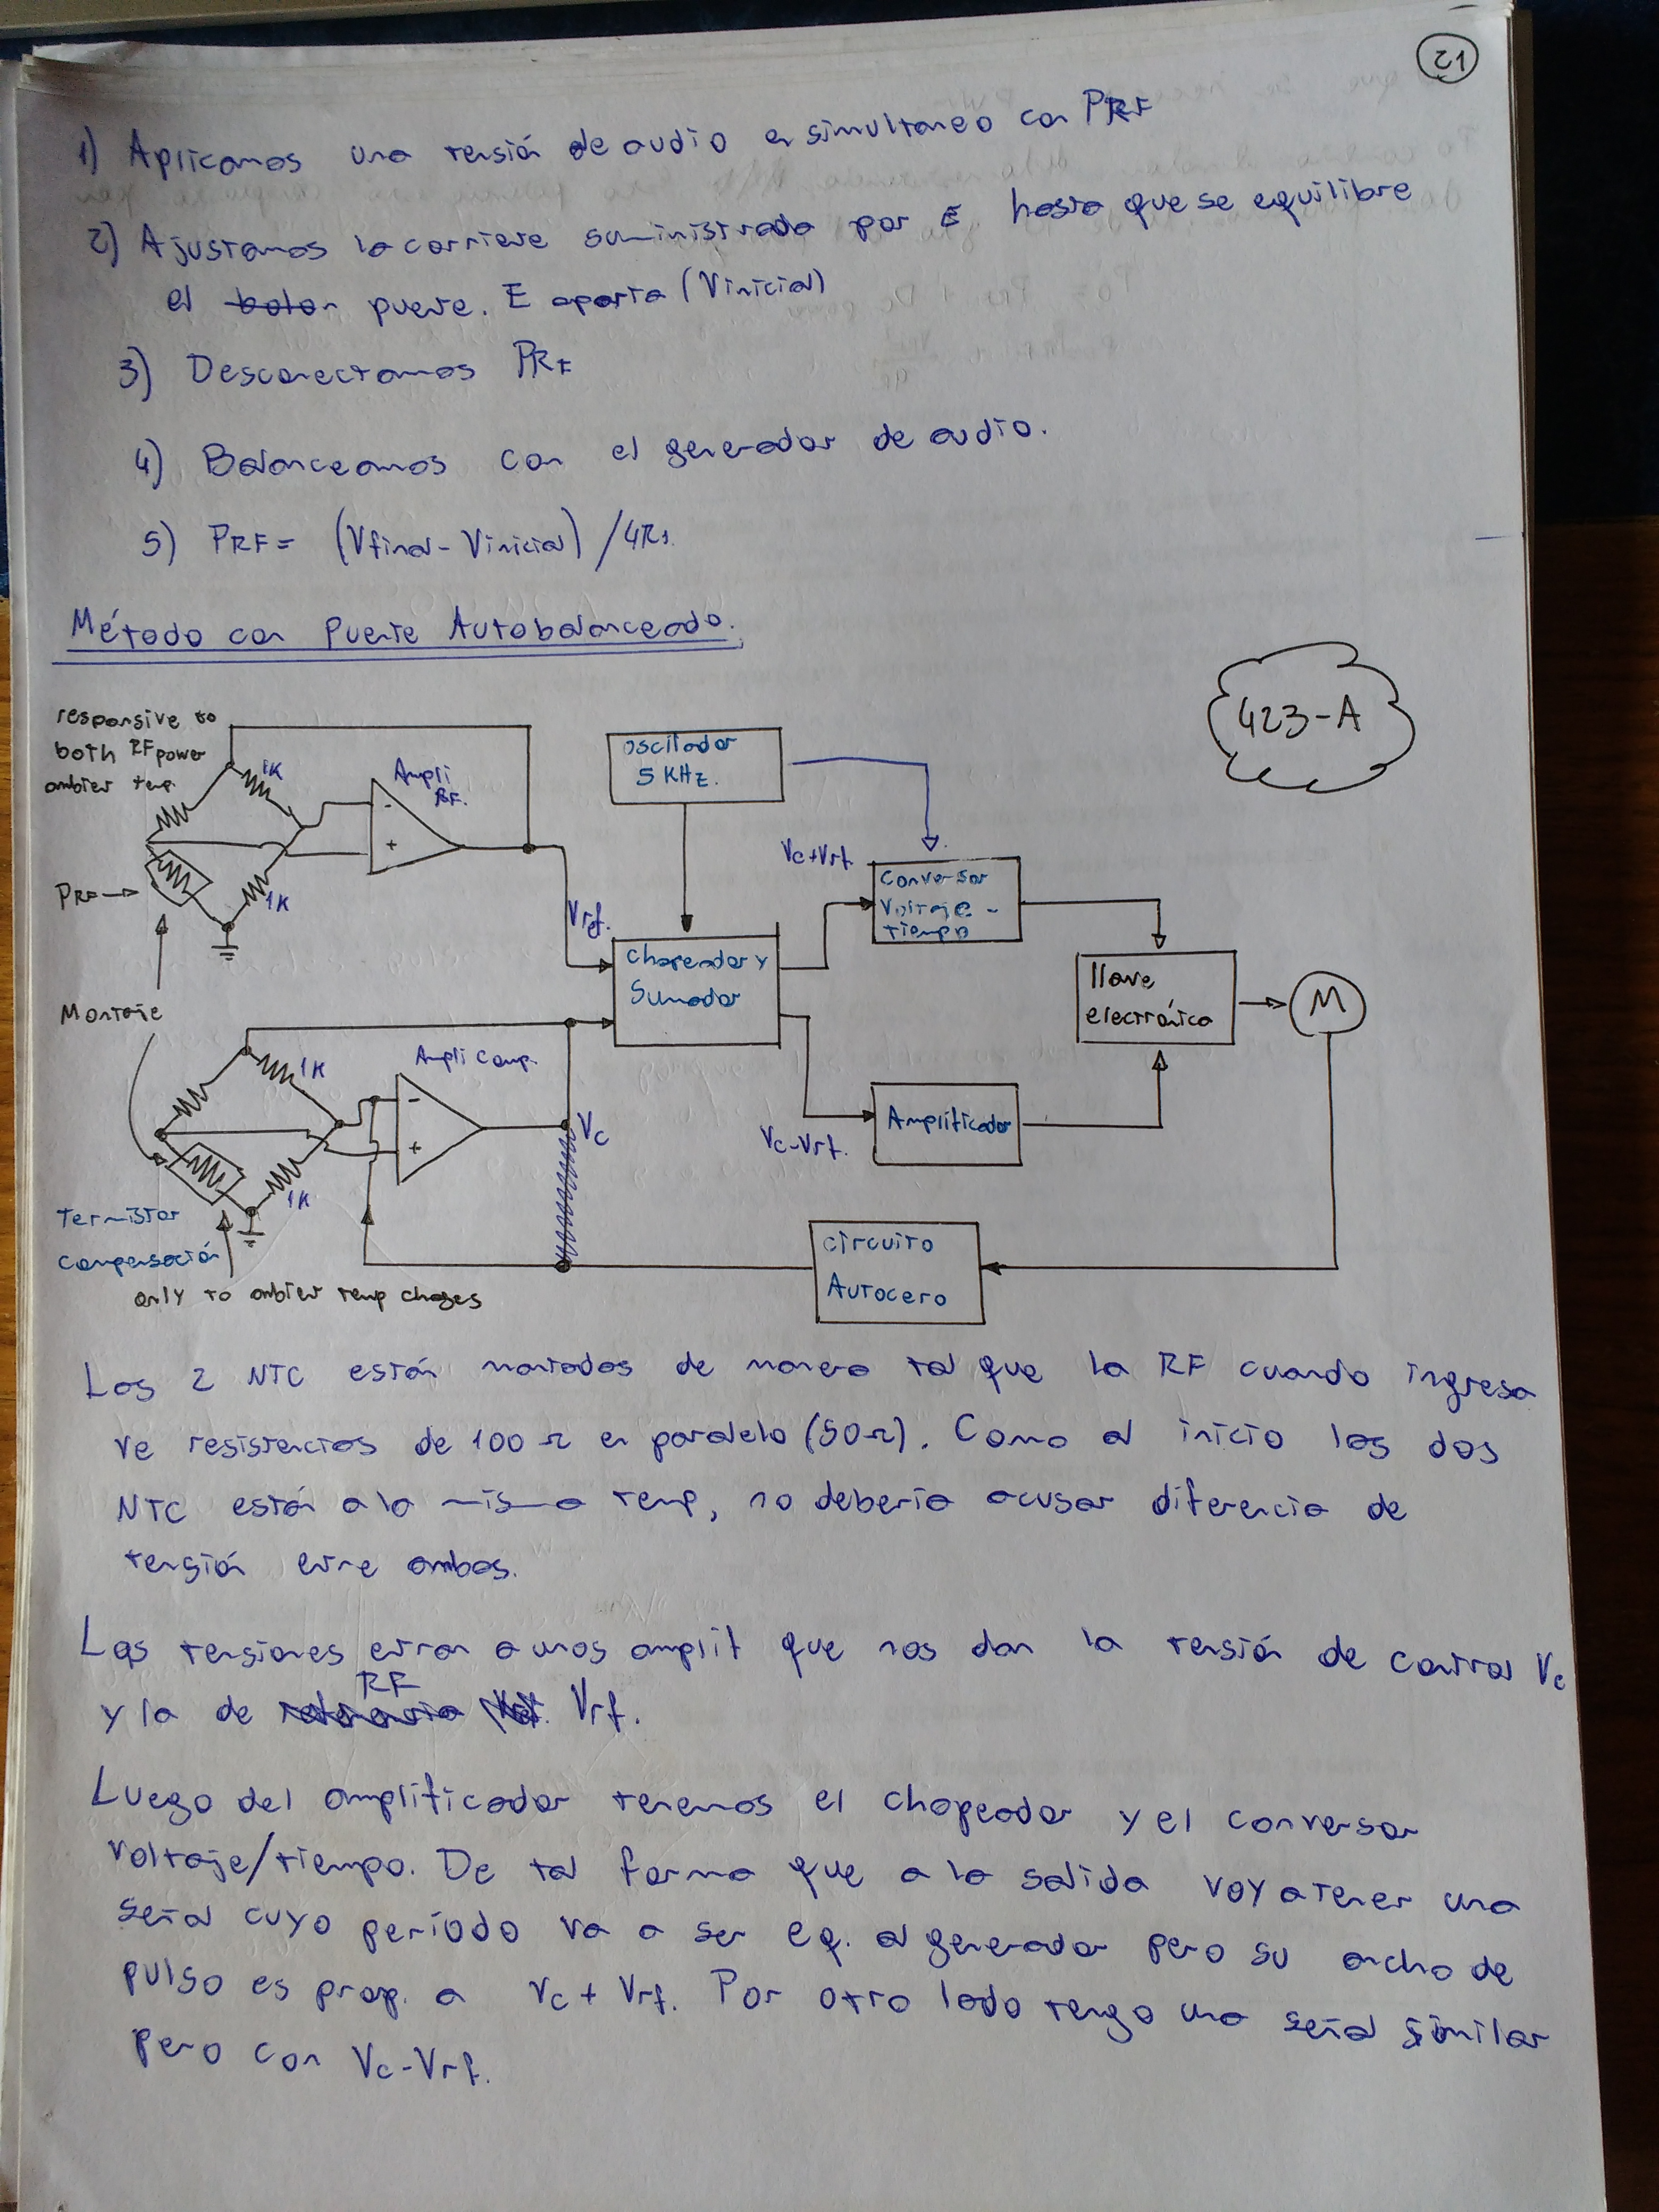 21
1) Aplicamos una tensión de audio en simultaneo con PRF
2) Ajustamos la corriente suministrada por E hasta que se equilibre
el puente. E aporta (Vinicial)
3) Desconectamos PRF
4) Balanceamos con el generador de audio.
5) PRF = (Vfinal - Vinicial) /4Rs
Método con Puente Autobalanceado.
423-A
responsive to
both RF power
ambient temp.
1K
Ampli
RF.
-
+
1K
PRF
oscilador
5 KHz.
Vc+Vrf.
Conversor
Voltaje -
tiempo
Vref.
Chopeador y
Sumador
llave
electrónica
M
Montaje
1K
Ampli Comp.
-
+
1K
Vc
Vc-Vrf.
Amplificador
Termistor
compensación
only to ambient temp changes
circuito
Autocero
Los 2 NTC están montados de manera tal que la RF cuando ingresa
ve resistencias de 100 Ω en paralelo (50Ω). Como al inicio los dos
NTC están a la misma temp, no debería acusar diferencia de
tensión entre ambos.
Las tensiones entran a unos amplif que nos dan la tensión de control Vc
y la de RF Vrf.
Luego del amplificador tenemos el chopeador y el conversor
voltaje/tiempo. De tal forma que a la salida voy a tener una
señal cuyo período va a ser eq. al generador pero su ancho de
pulso es prop. a Vc + Vrf. Por otro lado tengo una señal similar
pero con Vc-Vrf.